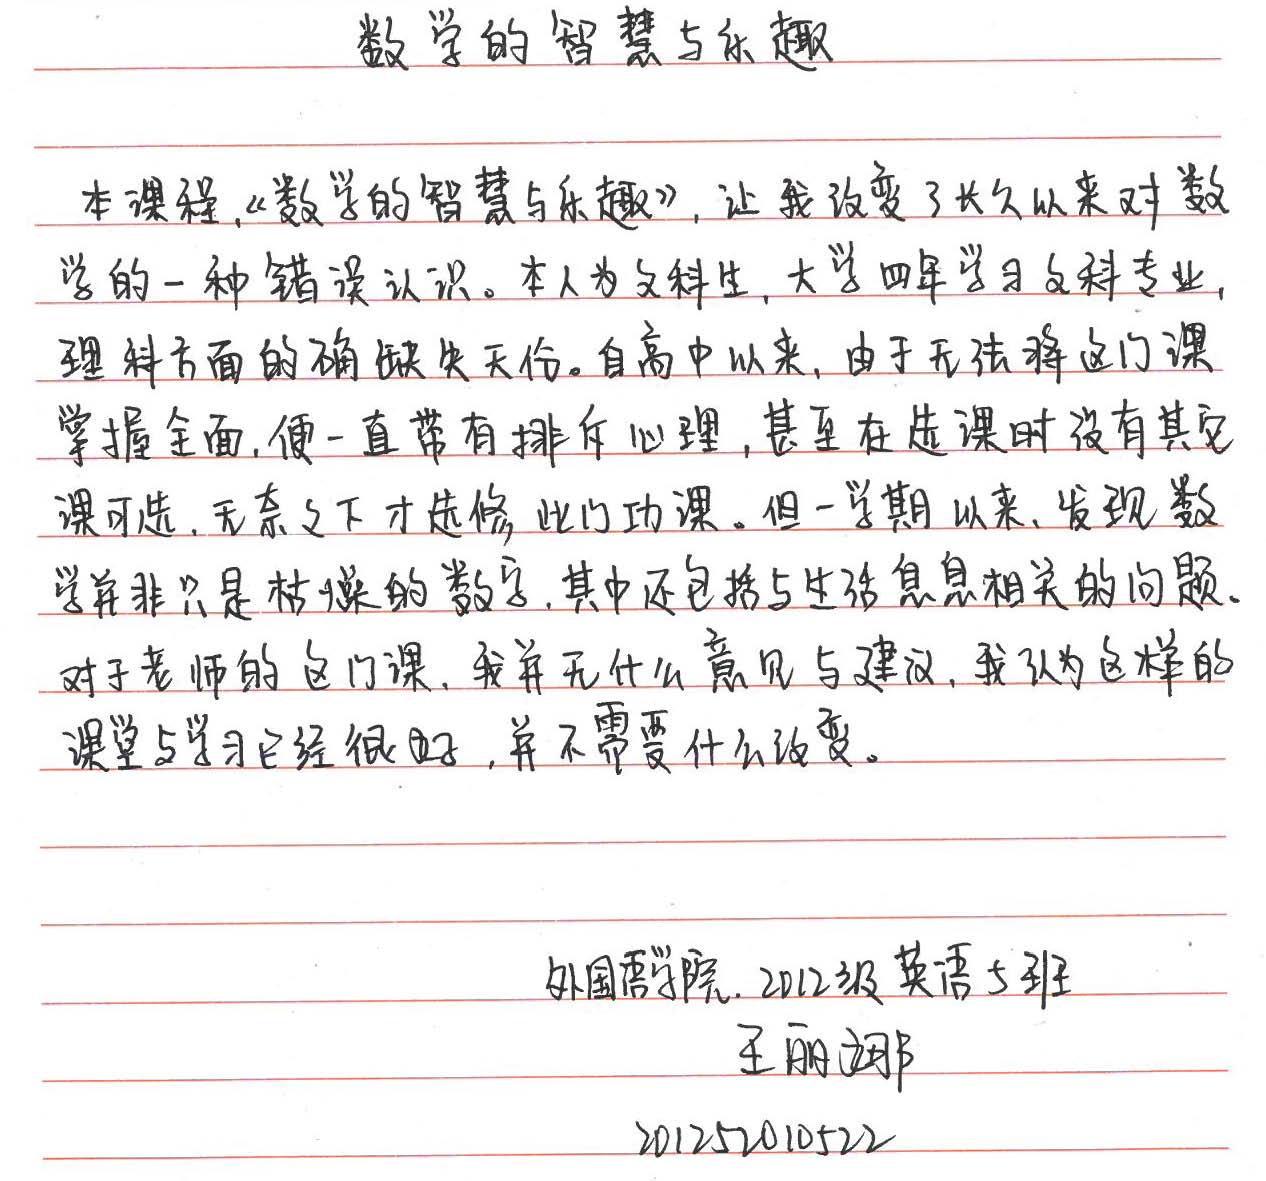 数学的智慧与乐趣
本课程,《数学的智慧与乐趣》,让我改变了长久以来对数
学的一种错误认识。本人为文科生,大学四年学习文科专业,
理科方面的确缺失天份。自高中以来,由于无法将这门课
掌握全面,便一直带有排斥心理,甚至在选课时没有其它
课可选,无奈之下才选修此门功课。但一学期以来,发现数
学并非只是枯燥的数字,其中还包括与生活息息相关的问题。
对于老师的这门课,我并无什么意见与建议,我认为这样的
课堂与学习已经很好,并不需要什么改变。
外国语学院.2012级英语5班
王丽娜
201252010522